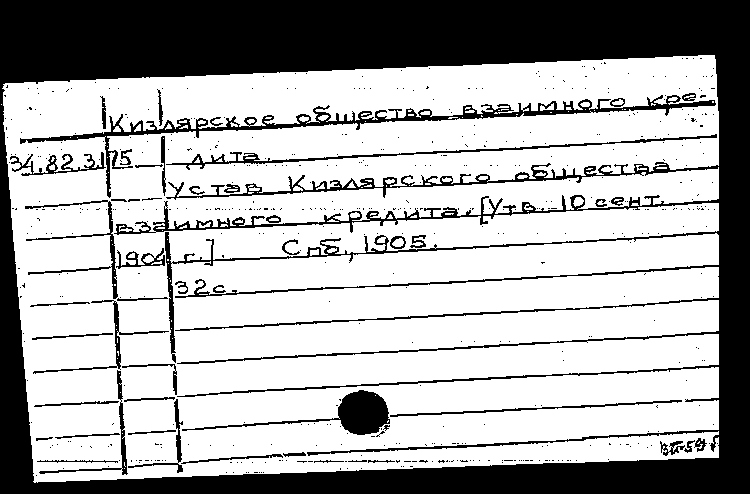 Кизлярское общество взаимного кре-
34.82.3175 дита.
Устав Кизлярского общества
взаимного кредита. [Утв. 10 сент.
1904 г.]. Спб., 1905.
32 с.